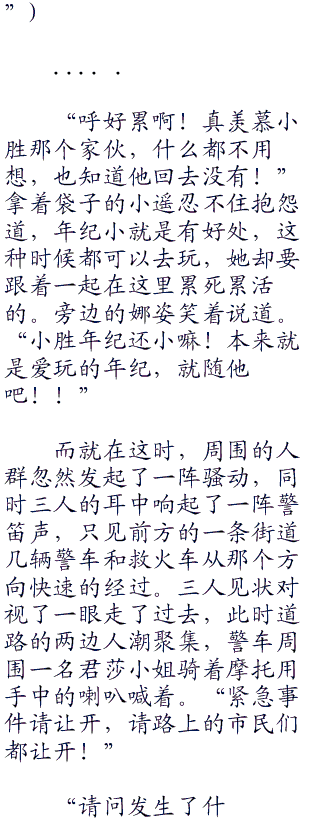 ”）
．．．．．
“呼好累啊！真羡慕小
胜那个家伙，什么都不用
想，也知道他回去没有！”
拿着袋子的小遥忍不住抱怨
道，年纪小就是有好处，这
种时候都可以去玩，她却要
跟着一起在这里累死累活
的。旁边的娜姿笑着说道。
“小胜年纪还小嘛！本来就
是爱玩的年纪，就随他
吧！！”
而就在这时，周围的人
群忽然发起了一阵骚动，同
时三人的耳中响起了一阵警
笛声，只见前方的一条街道
几辆警车和救火车从那个方
向快速的经过。三人见状对
视了一眼走了过去，此时道
路的两边人潮聚集，警车周
围一名君莎小姐骑着摩托用
手中的喇叭喊着。“紧急事
件请让开，请路上的市民们
都让开！”
“请问发生了什